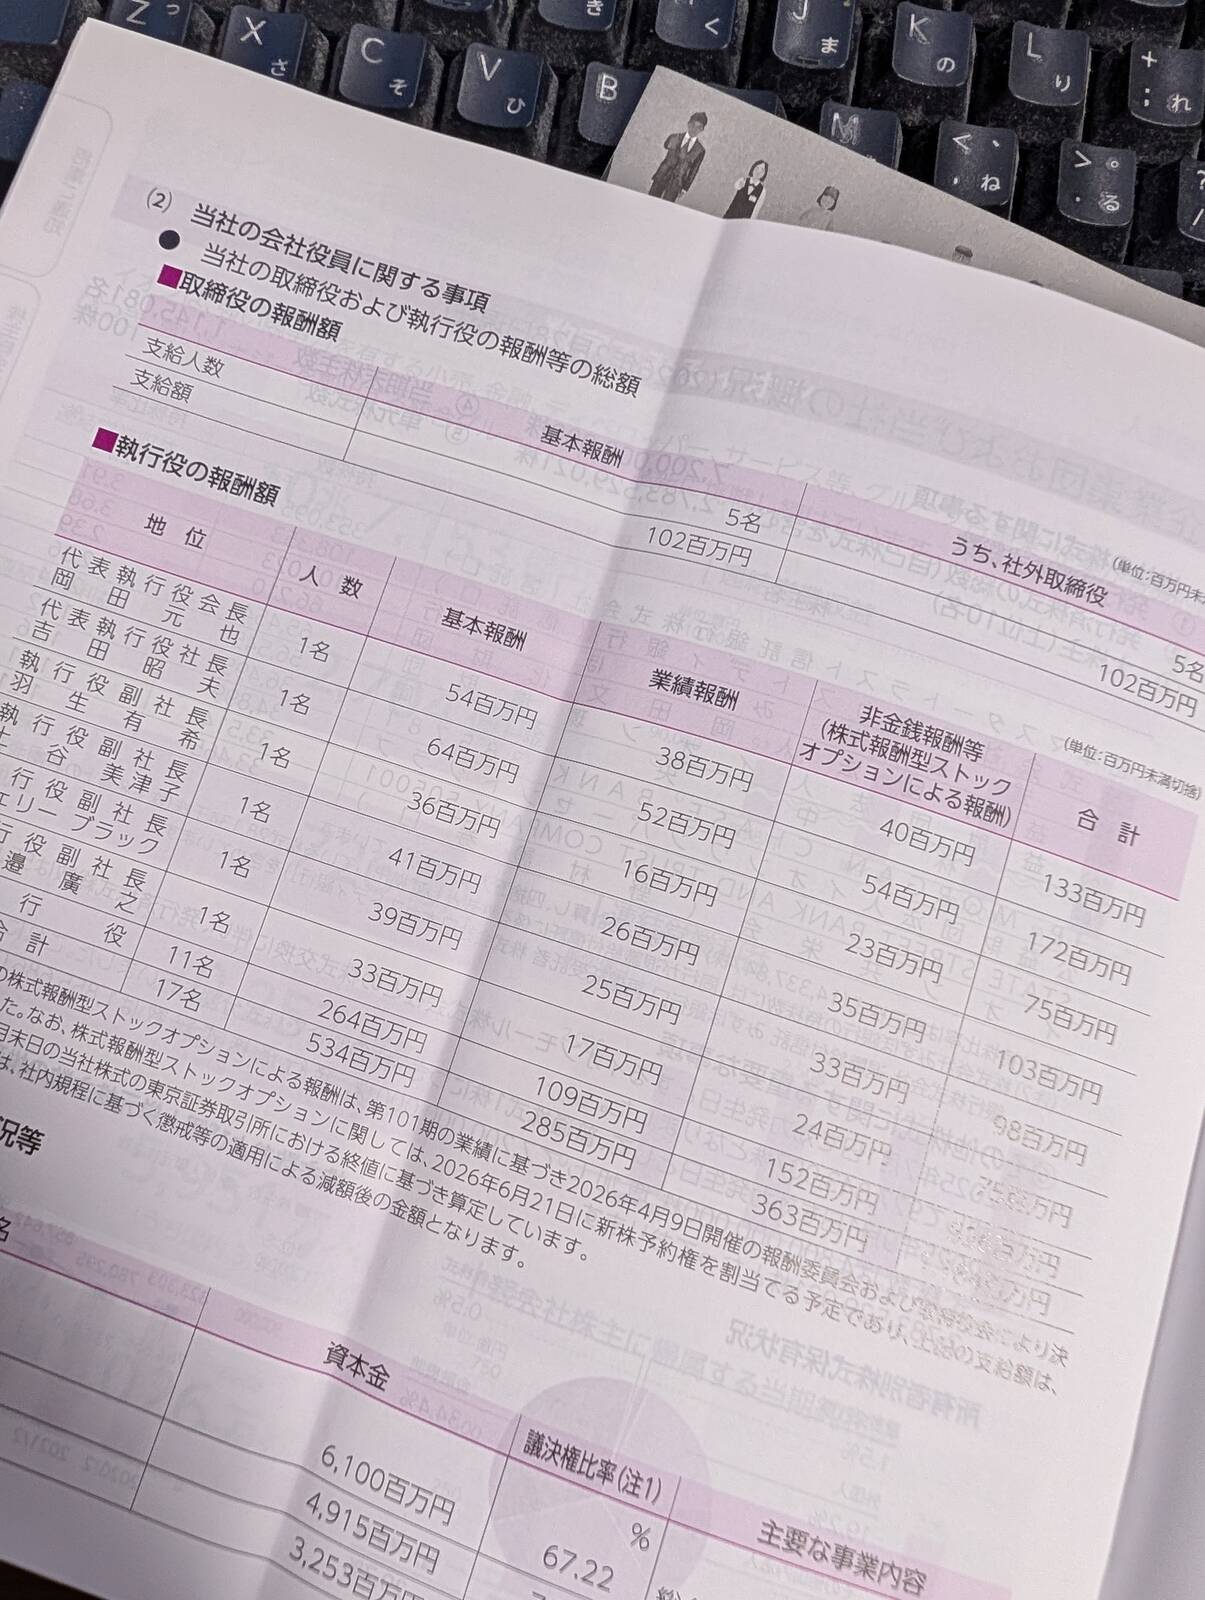 Z っ
X さ
C そ
V ひ
B
き
く
J ま
M
K の
L り
+ ; れ
< 、 , ね
> 。 . る
?
/
(2) 当社の会社役員に関する事項
● 当社の取締役および執行役の報酬等の総額
■取締役の報酬額
(単位：百万円未
基本報酬 うち、社外取締役
支給人数 5名 5名
支給額 102百万円 102百万円
■執行役の報酬額
(単位：百万円未満切捨)
地位 人数 基本報酬 業績報酬 非金銭報酬等(株式報酬型ストックオプションによる報酬) 合計
代表執行役会長 岡田元也 1名 54百万円 38百万円 40百万円 133百万円
代表執行役社長 吉田昭夫 1名 64百万円 52百万円 54百万円 172百万円
執行役副社長 羽生有希 1名 36百万円 16百万円 23百万円 75百万円
執行役副社長 土谷美津子 1名 41百万円 26百万円 35百万円 103百万円
行役副社長 ェリー ブラック 1名 39百万円 25百万円 33百万円 98百万円
行役副社長 邉廣之 1名 33百万円 17百万円 24百万円 百万円
行役 11名 264百万円 109百万円 152百万円 百万円
合計 17名 534百万円 285百万円 363百万円 百万円
の株式報酬型ストックオプションによる報酬は、第101期の業績に基づき2026年4月9日開催の報酬委員会および取締役会により決
た。なお、株式報酬型ストックオプションに関しては、2026年6月21日に新株予約権を割当てる予定であり、上記の支給額は、
月末日の当社株式の東京証券取引所における終値に基づき算定しています。
は、社内規程に基づく懲戒等の適用による減額後の金額となります。
況等
名 資本金 議決権比率(注1) 主要な事業内容
6,100百万円 % 67.22
4,915百万円
3,253百万円